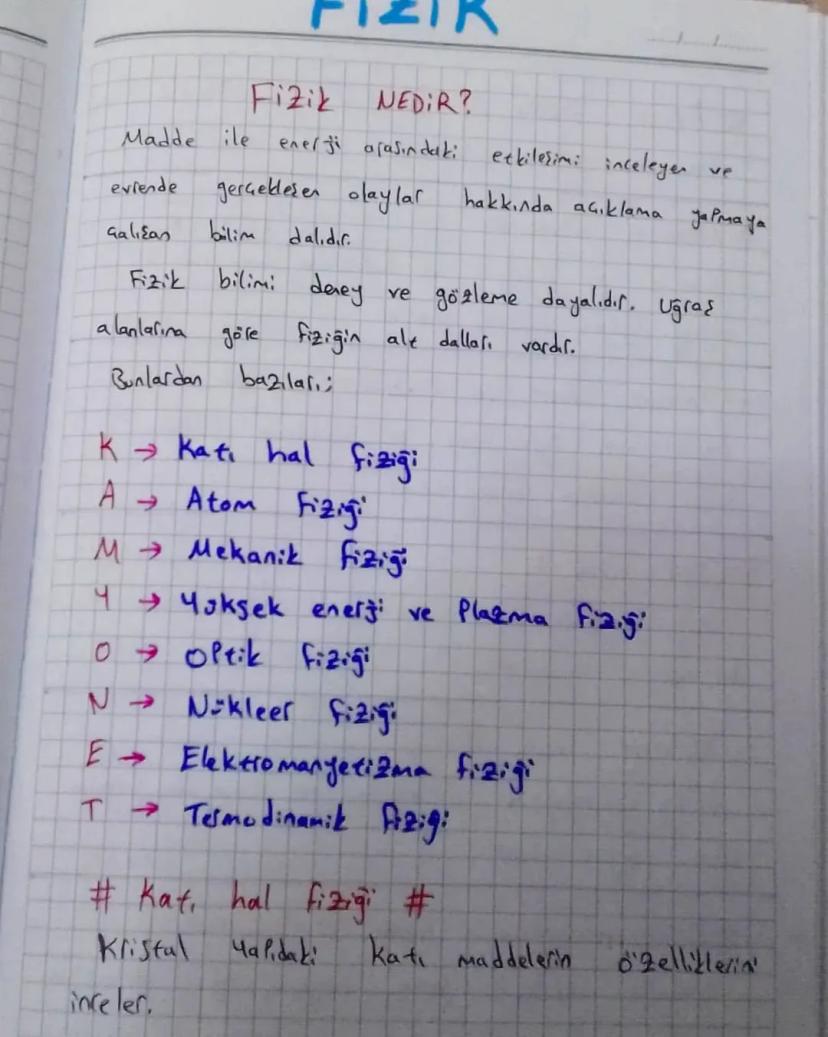 FİZİK
Fizik NEDİR?
Madde ile enerji arasındaki etkileşimi inceleyen ve
evrende gerçekleşen olaylar hakkında açıklama yapmaya
çalışan bilim dalıdır.
Fizik bilimi deney ve gözleme dayalıdır. Uğraş
alanlarına göre fiziğin alt dalları vardır.
Bunlardan bazıları;
K → Katı hal fiziği
A → Atom fiziği
M → Mekanik fiziği
Y → Yüksek enerji ve Plazma fiziği
O → Optik fiziği
N → Nükleer fiziği
E → Elektromanyetizma fiziği
T → Termodinamik fiziği
# Katı hal fiziği #
Kristal yapıdaki katı maddelerin özelliklerini
inceler.